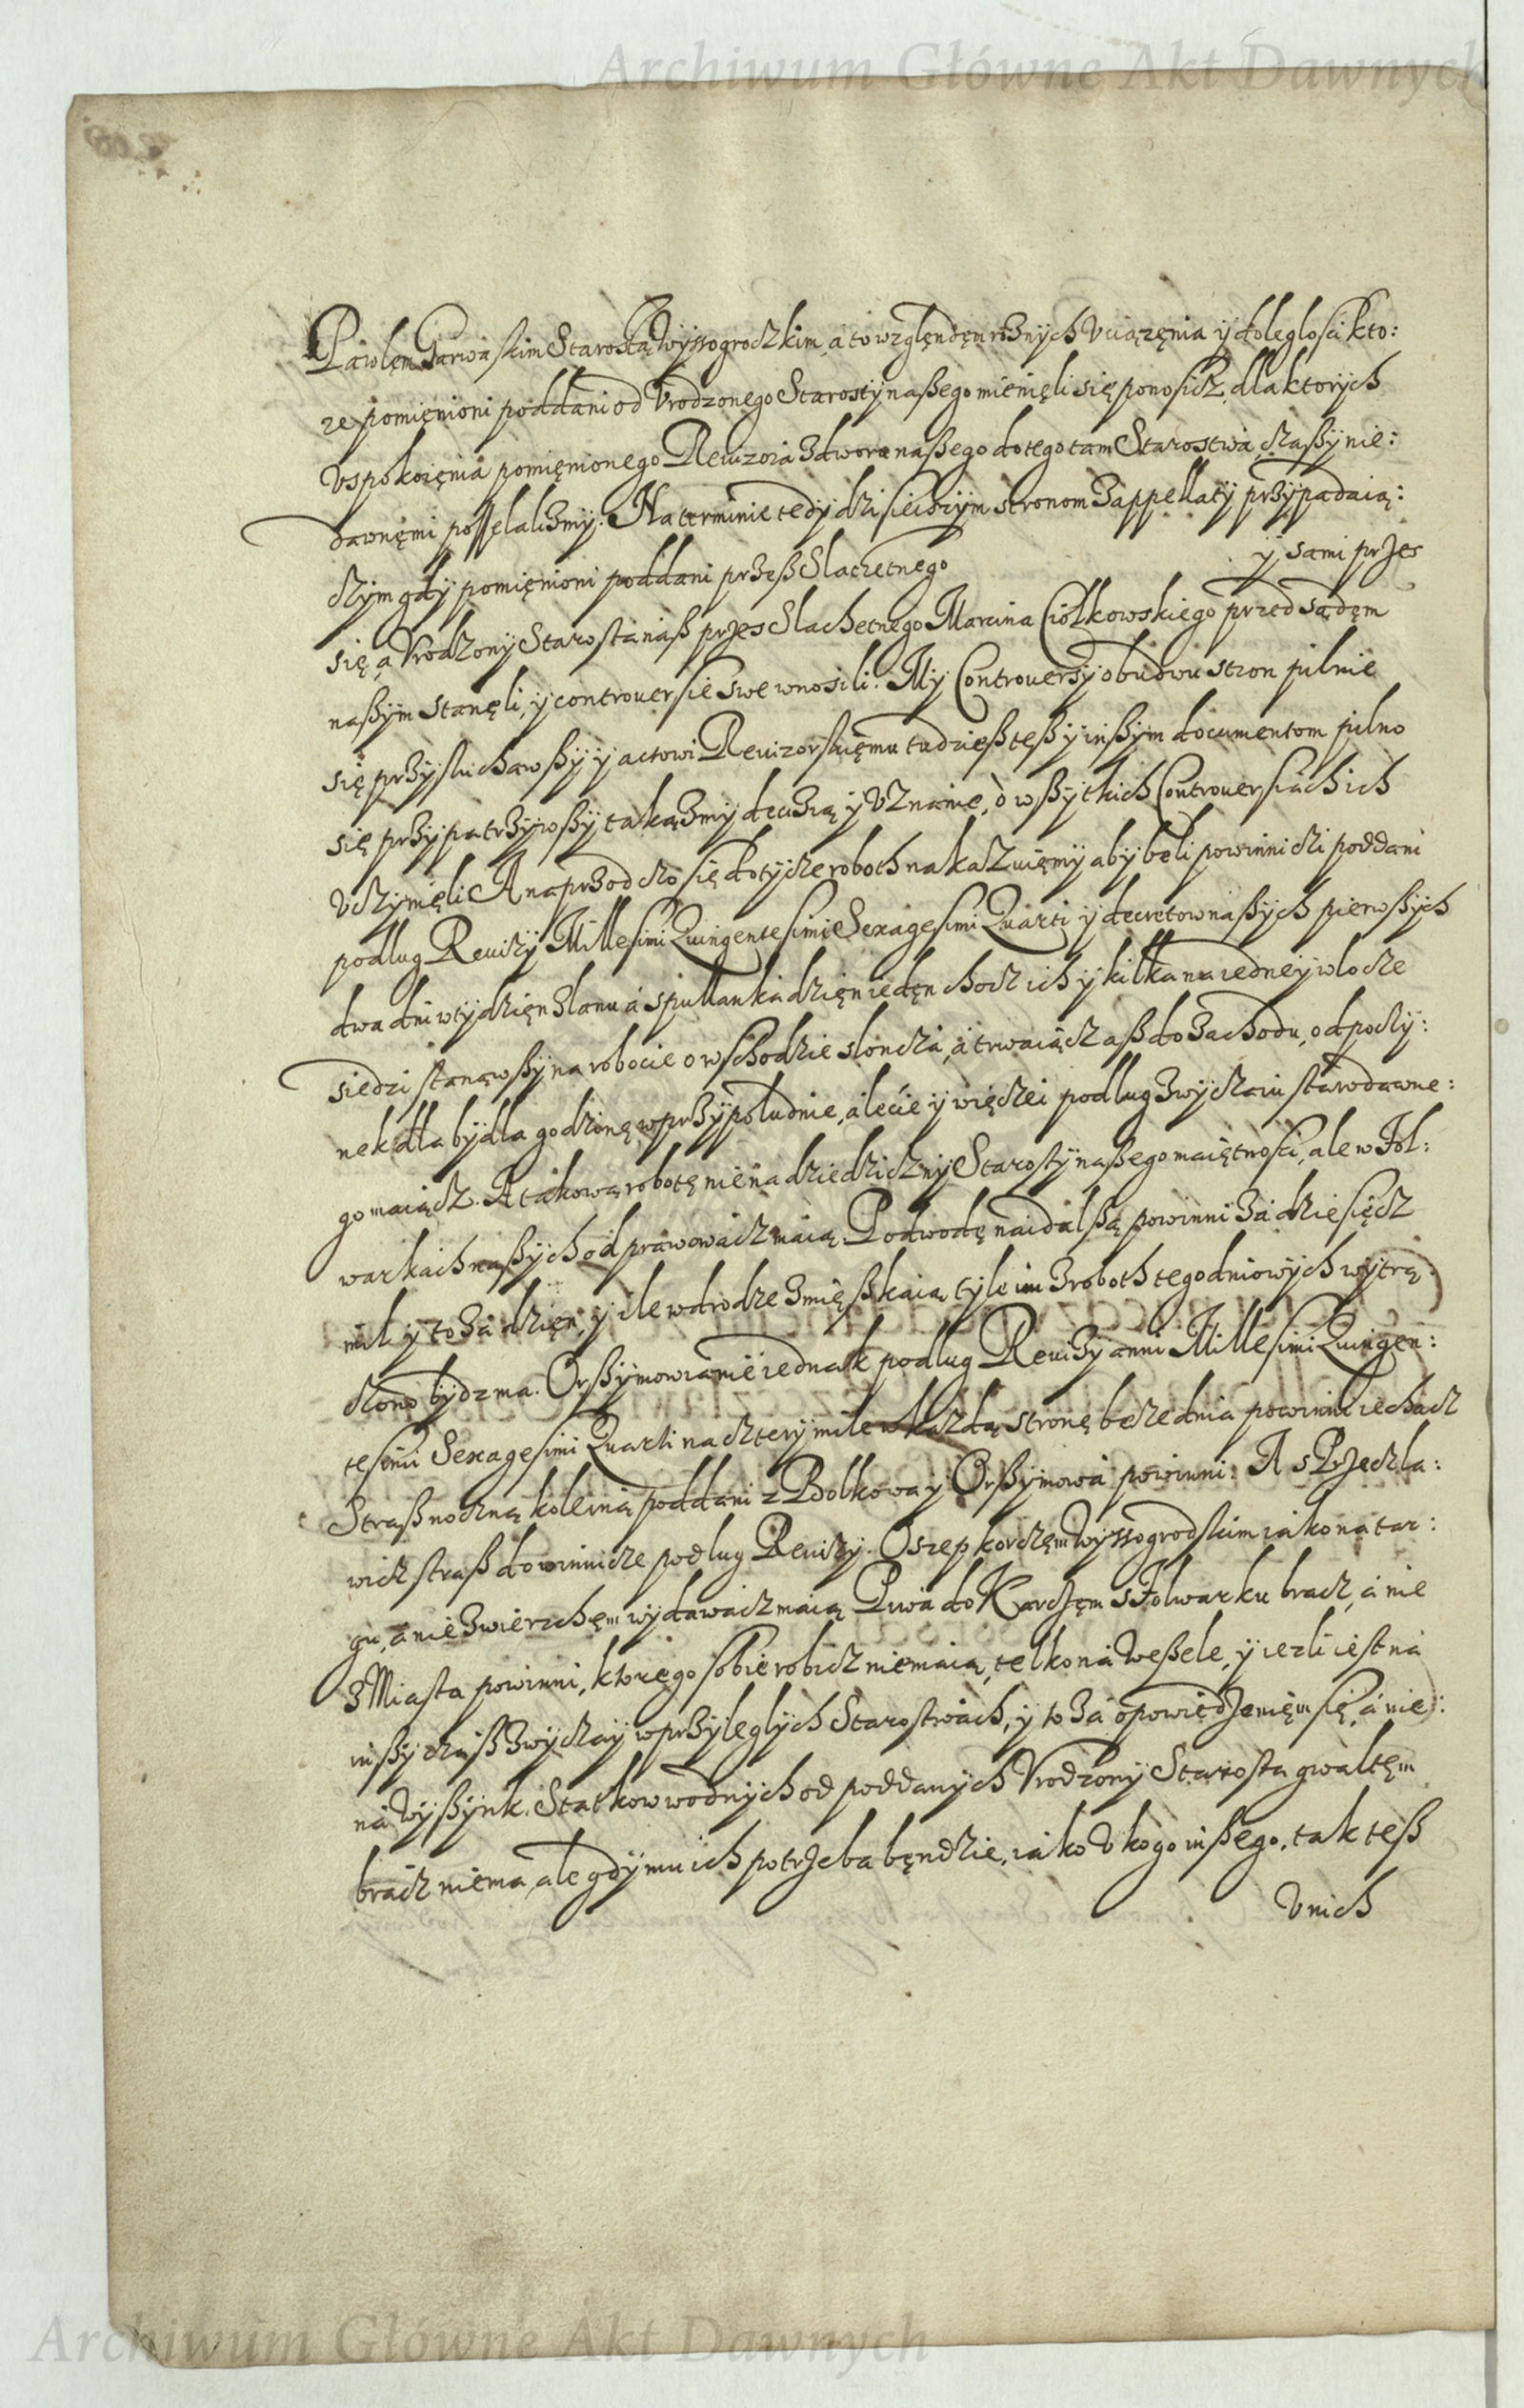 Archiwum Główne Akt Dawnych
Pawlęm Garwaskim Starostą Wyssogrodzkim, a to względęm roznych Uciązęnia y dolęglosci kto:
re pomięnioni poddani od Urodzonego Starosty naßego mienięli się ponosicz, dla ktorych
Uspokoięnia pomięnionego Rewizora z dworu naßego do tego tam Starostwa, czaßy nie:
dawnęmi posselalizmy. Na terminie tedy dzisieiszym stronom z appellaty przypadaią:
czym gdy pomięnioni poddani przeß Slachetnego y sami przes
się, a Urodzony Starosta naß przes Slachetnego Marcina Ciołkowskiego przed sądęm
naßym stanęli, y controuersie swe wnosili. My Controuersy obudwu stron pilnie
się przysluchawßy y actowi Reuizorskięmu tudzieß teß y inßym documentom pilno
się przypatrzywßy taką zmy decizią y Uznanie, o wßytkich Controuersiach ich
Uczynięli. A naprzod czo się dotycze roboth nakazuięmy aby beli powinni czi poddani
podlug Reuizy Millesimi Quingentesimi Sexagesimi Quarti y decretow naßych pierwßych
dwa dni w tydzięn z lanu a s pullanka dzięn iedęn choc z ich y kilka na iedney wlocze
siedzi stanąwßy na robocie o wschodzie sloncza, a trwaiącz aß do zachodu, odpoczy:
nek dla bydla godzinę w przypoludnie, a lecie y więczei podlug zwyczaiu starodawne:
go maiącz. A takową robotę nie na dziedziczny Starosty naßego maiętnosci, ale w Fol:
warkach naßych odprawowacz maią. Podwodę naidalßą powinni za dziesięcz
mil y to za dzięn, y ile w drodze zmięßkaią tyle im z roboth tegodniowych wytrą:
czono bydz ma. Orßymowianie iednak podlug Reuizy anni Millesimi Quingen:
tesimi Sexagesimi Quarti na cztery mile w kazdą stronę beze dnia powinni iechacz
Straß nocną koleiną poddani z Bolkowa y Orßymowa powinni. A s Przeczla:
wicz straß do winnicze podlug Reuizy. Oszep korczęm Wyssogrodskim iako na tar:
gu, a nie z wierzchęm wydawacz maią Piwa do Karczęm s Folwarku bracz, a nie
z Miasta powinni, ktorego sobie robicz niemaią, telko na Weßele, y iezli iest na
inßy czaß zwyczay w przyleglych Starostwach, y to za opowiedzenięm się, a nie:
na Wyßynk. Statkow wodnych od poddanych Urodzony Starosta gwaltęm
bracz niema, ale gdy mu ich potrzeba bęndzie, iako U kogo inßego, tak teß
U nich
Archiwum Główne Akt Dawnych